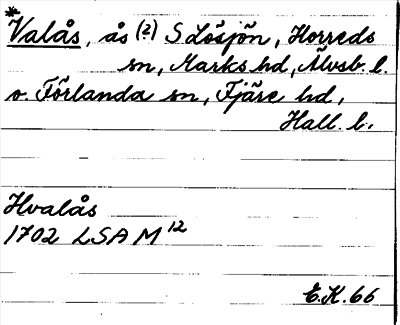 *Valås, ås (2) S Lösjön, Horreds
sn, Marks hd, Älvsb. l.
o. Förlanda sn, Fjäre hd,
Hall. l.
Hvalås
1702 LSA M 12
E.K. 66